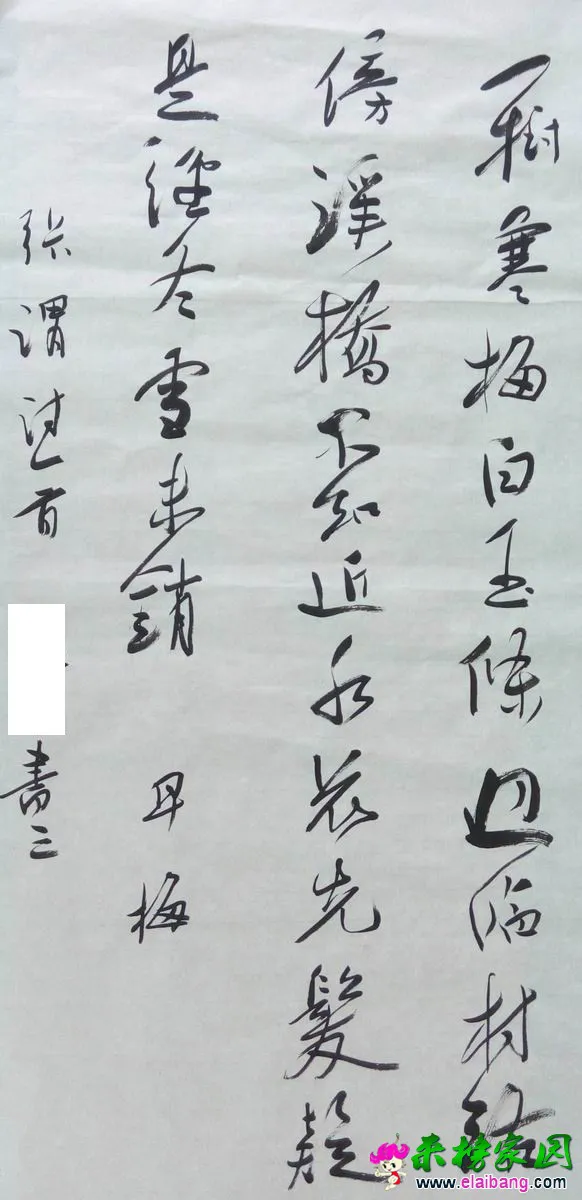 一樹寒梅白玉條迥临村路
傍溪橋不知近水花先髮疑
是經冬雪未銷 早梅
张謂诗一首
書之
来榜家园
www.elaibang.com